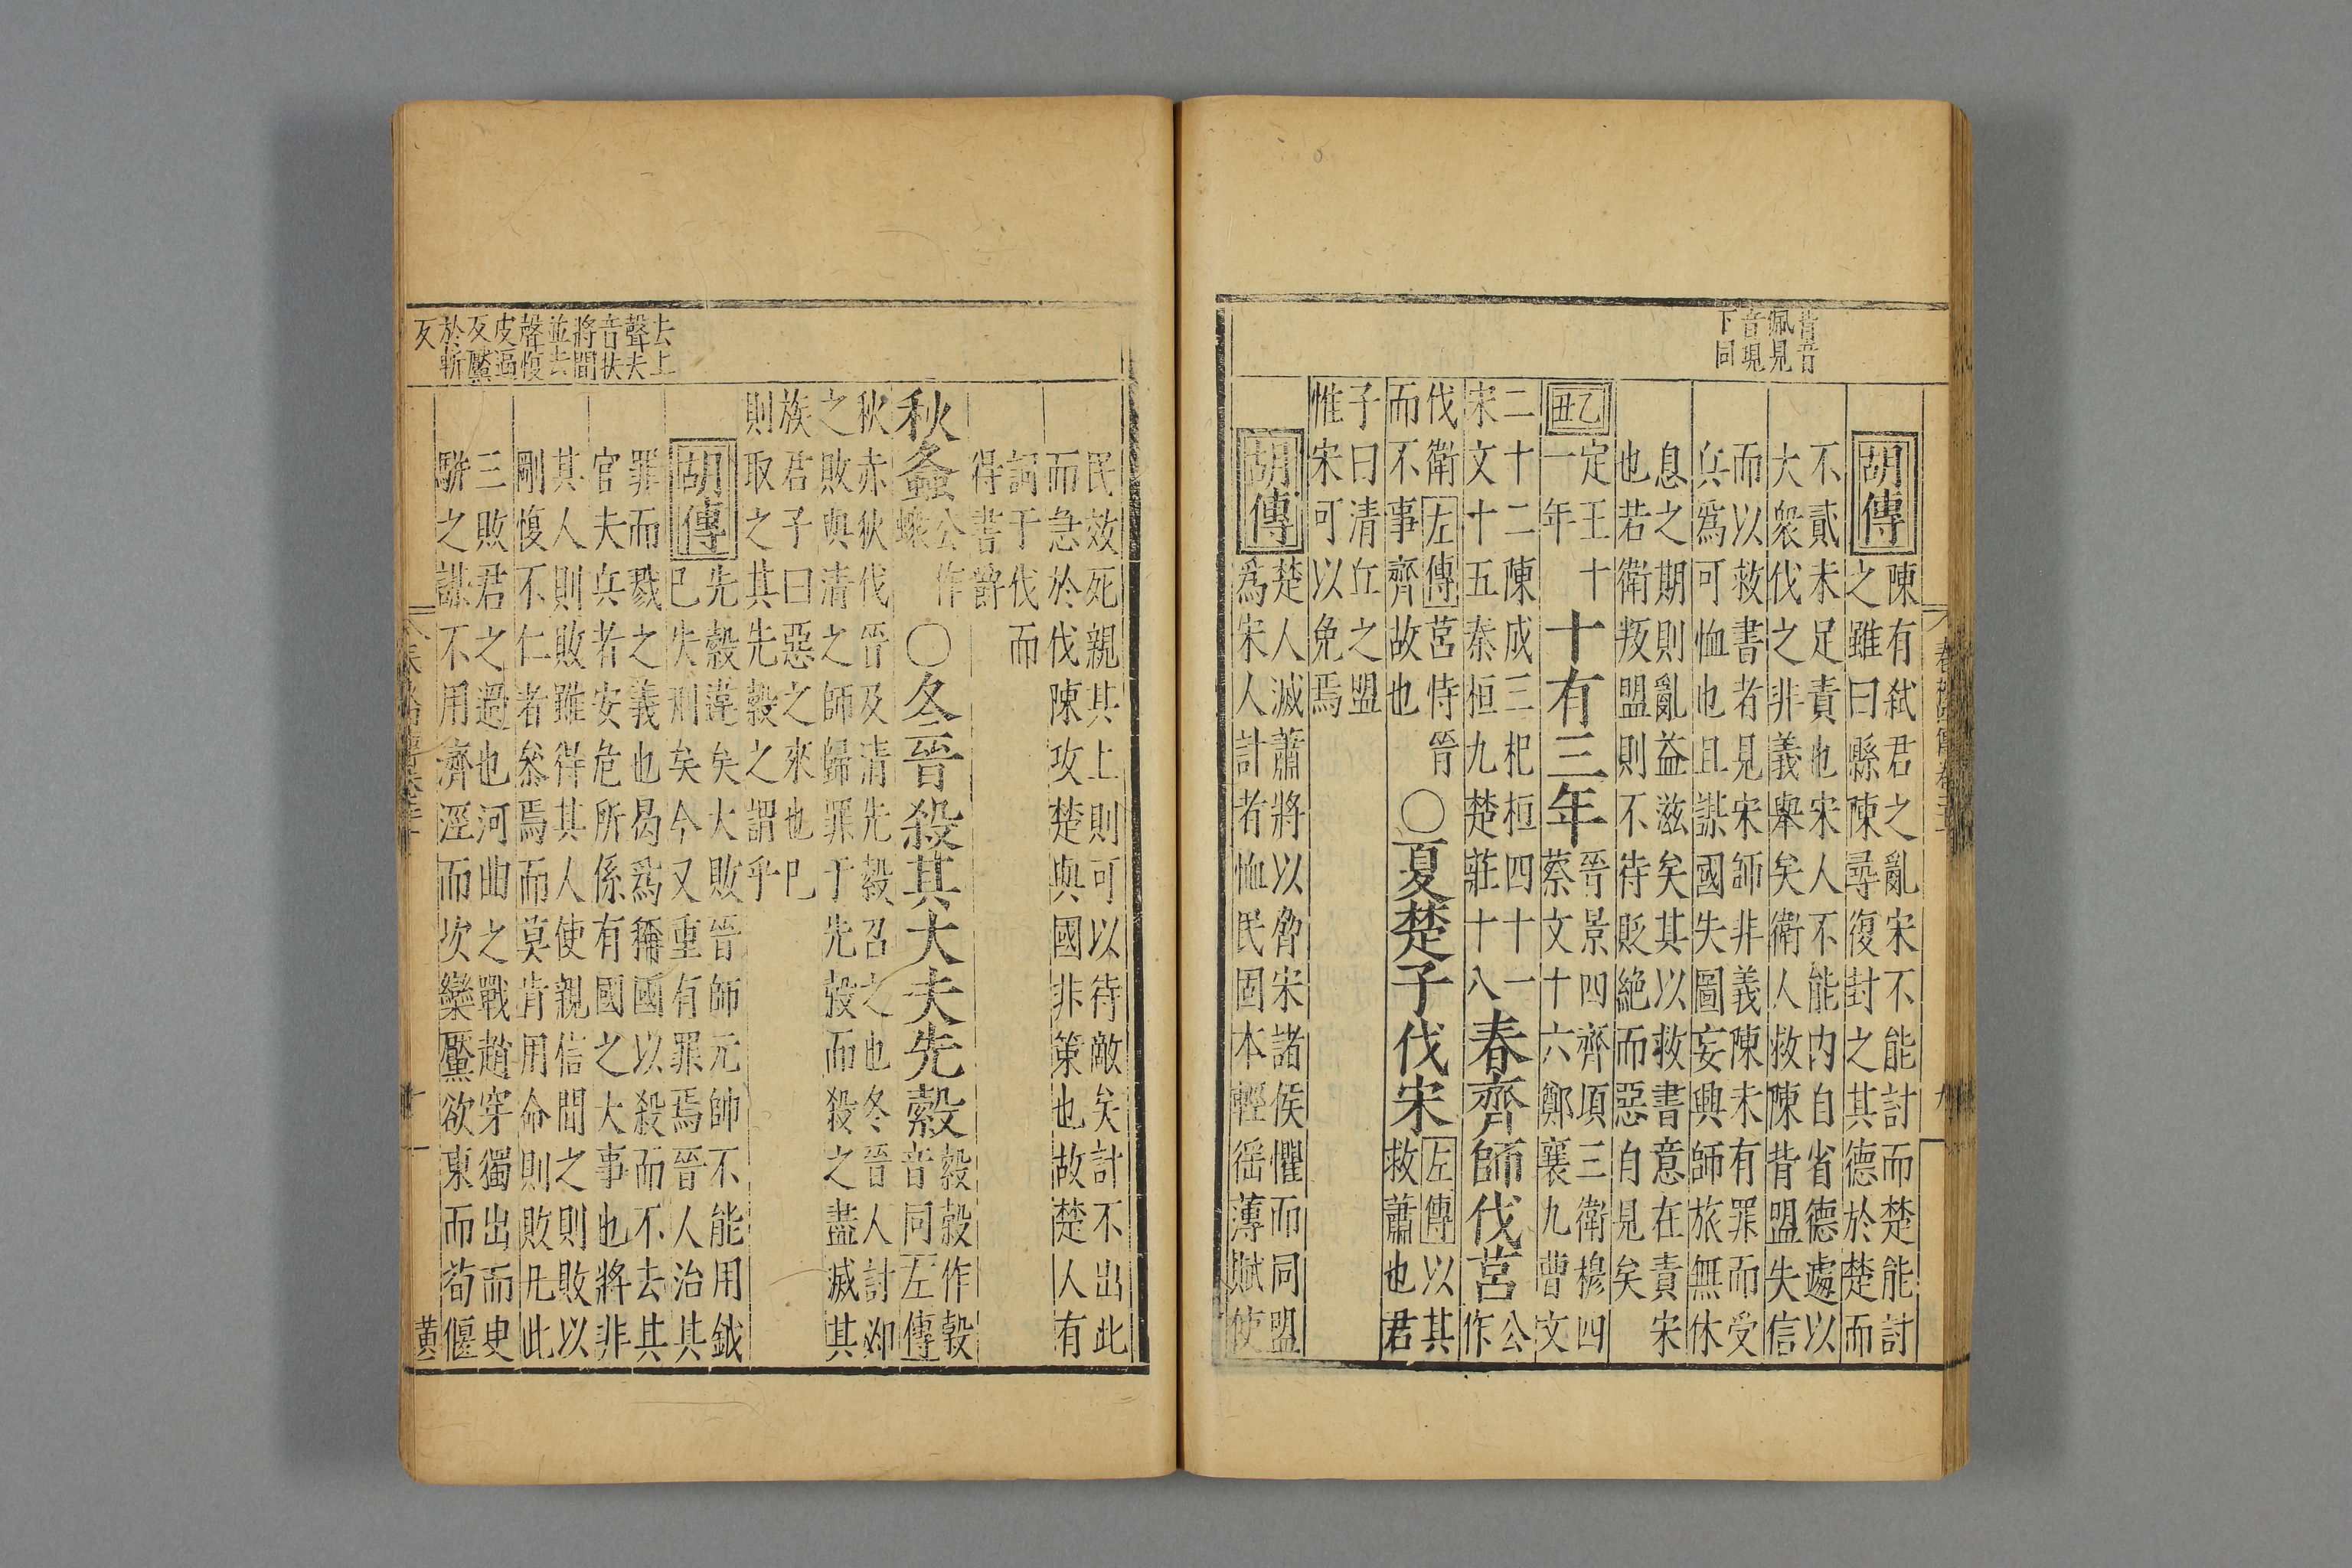 背音
佩見
音現
下同
胡傳
陳有弑君之亂宋不能討而楚能討
之雖曰縣陳尋復封之其德於楚而
不貳未足責也宋人不能内自省德遽以
大衆伐之非義舉矣衛人救陳背盟失信
而以救書者見宋師非義陳未有罪而受
兵爲可恤也且謀國失圖妄興師旅無休
息之期則亂益滋矣其以救書意在責宋
也若衛叛盟則不待貶絶而惡自見矣
乙丑
定王十
一年
十有三年
晉景四齊項三衛穆四
蔡文十六鄭襄九曹文
二十二陳成三杞桓四十一
宋文十五秦桓九楚莊十八
春齊師伐莒
公
作
伐衛左傳莒恃晉
而不事齊故也
○夏楚子伐宋
左傳以其
救蕭也君
子曰清丘之盟
惟宋可以免焉
胡傳
楚人滅蕭將以脅宋諸侯懼而同盟
爲宋人計者恤民固本輕徭薄賦使
民效死親其上則可以待敵矣計不出此
而急於伐陳攻楚與國非策也故楚人有
詞于伐而
得書爵
秋螽
公作
蝝
○冬晉殺其大夫先縠
縠穀作穀
音同左傳
秋赤狄伐晉及清先縠召之也冬晉人討邲
之敗與清之師歸罪于先縠而殺之盡滅其
族君子曰惡之來也已
則取之其先縠之謂乎
胡傳
先縠違矣大敗晉師元帥不能用鉞
已失刑矣今又重有罪焉晉人治其
罪而戮之義也曷爲稱國以殺而不去其
官夫兵者安危所係有國之大事也將非
其人則敗雖得其人使親信間之則敗以
剛愎不仁者參焉而莫肯用命則敗凡此
三敗君之過也河曲之戰趙穿獨出而臾
駢之謀不用濟涇而次欒黶欲東而荀偃
去上
聲夫
音扶
將間
並去
聲愎
皮逼
反黶
於斬
反
黃